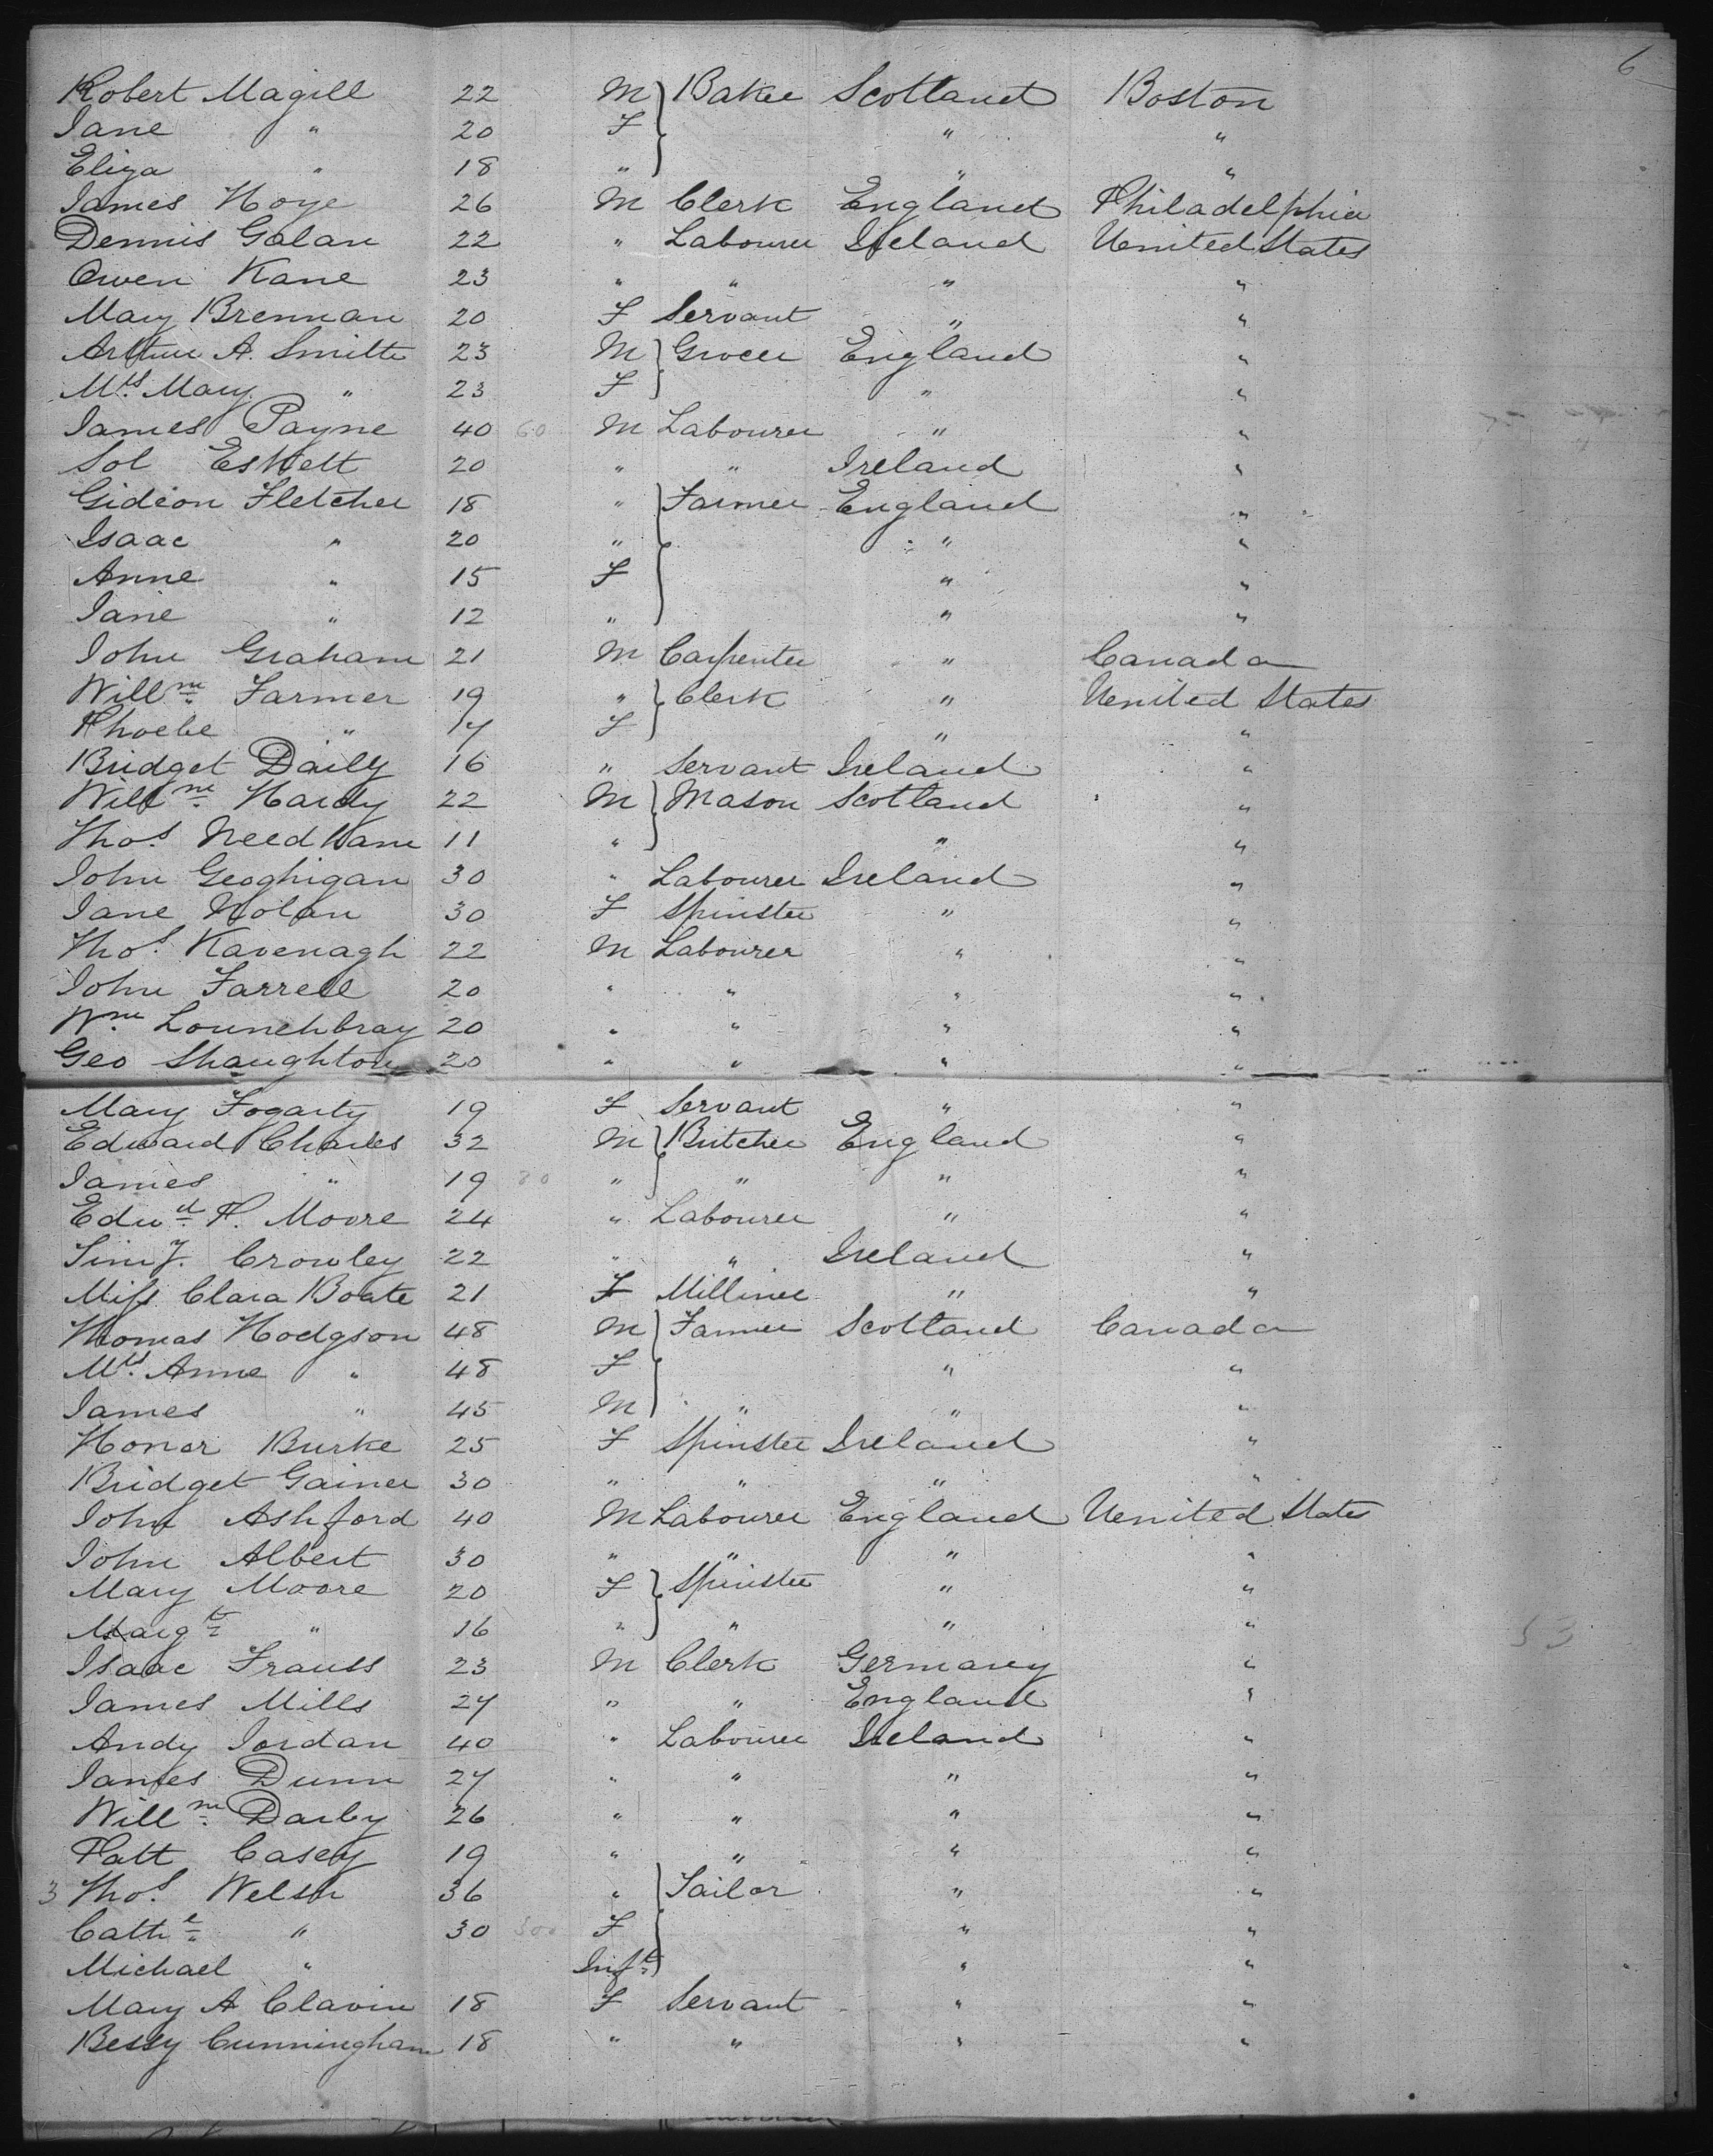 6
Robert Magill 22 M Baker Scotland Boston
Jane " 20 F " "
Eliza " 18 " " "
James Hoye 26 M Clerk England Philadelphia
Dennis Galan 22 " Labourer Ireland United States
Owen Kane 23 " " " "
Mary Brennan 20 F Servant " "
Arthur A. Smith 23 M Grocer England "
Mrs. Mary " 23 F " "
James Payne 40 60 M Labourer " "
Sol Eskett 20 " " Ireland "
Gideon Fletcher 18 " Farmer England "
Isaac " 20 " " "
Anne " 15 F " "
Jane " 12 " " "
John Graham 21 M Carpenter " Canada
Willm. Farmer 19 " Clerk " United States
Phoebe " 17 F " "
Bridget Daily 16 " Servant Ireland "
Willm. Hardy 22 M Mason Scotland "
Thos. Needham 11 " " "
John Geoghigan 30 " Labourer Ireland "
Jane Nolan 30 F Spinster " "
Thos. Kavenagh 22 M Labourer " "
John Farrell 20 " " " "
Wm. Lounchbray 20 " " " "
Geo Shaughton 20 " " " "
Mary Fogarty 19 F Servant " "
Edward Charles 32 M Butcher England "
James " 19 80 " " " "
Edwd. P. Moore 24 " Labourer " "
Timy. Crowley 22 " " Ireland "
Miss Clara Boate 21 F Milliner " "
Thomas Hodgson 48 M Farmer Scotland Canada
Mrs. Anne " 48 F " "
James " 45 M " " "
Honor Burke 25 F Spinster Ireland "
Bridget Gainer 30 " " " "
John Ashford 40 M Labourer England United States
John Albert 30 " " " "
Mary Moore 20 F Spinster " "
Margt. " 16 " " " "
53
Isaac Frauss 23 M Clerk Germany "
James Mills 27 " " England "
Andy Jordan 40 " Labourer Ireland "
James Dunn 27 " " " "
Willm. Darby 26 " " " "
Patt Casey 19 " " " "
3 Thos. Welsh 36 " Tailor " "
Cathe. " 30 300 F " "
Michael " Inft. " "
Mary A Clavin 18 F Servant " "
Bessy Cunningham 18 " " " "